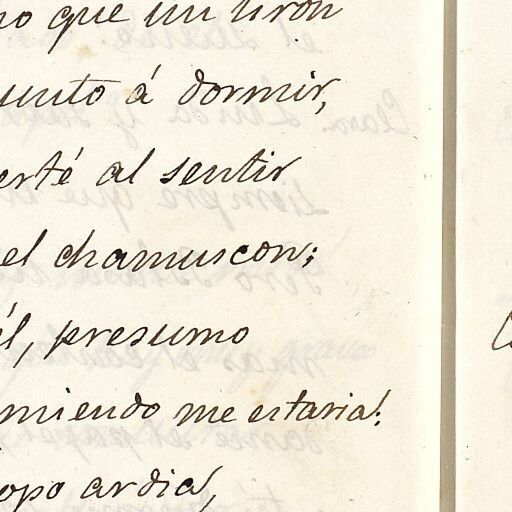 no que un tiron
unto á dormir,
erté al sentir
el chamuscon;
él, presumo
miendo me estaria!.
opo ardia,